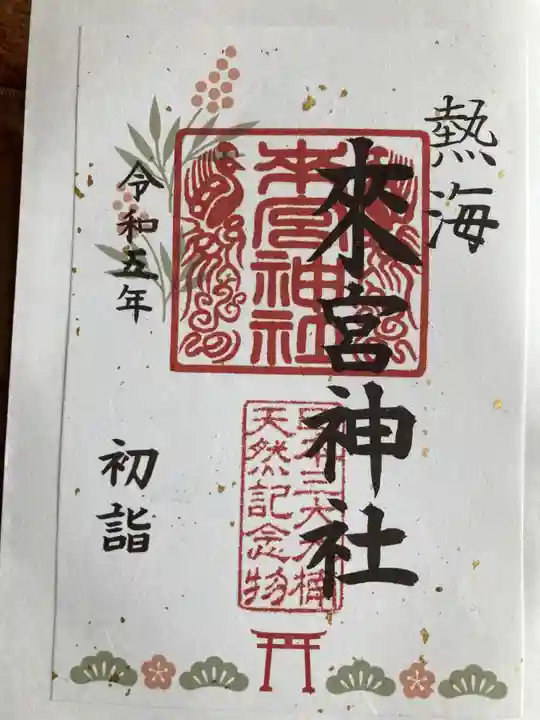 熱海
來宮神社
來宮神社
天然記念物
令和五年
初詣